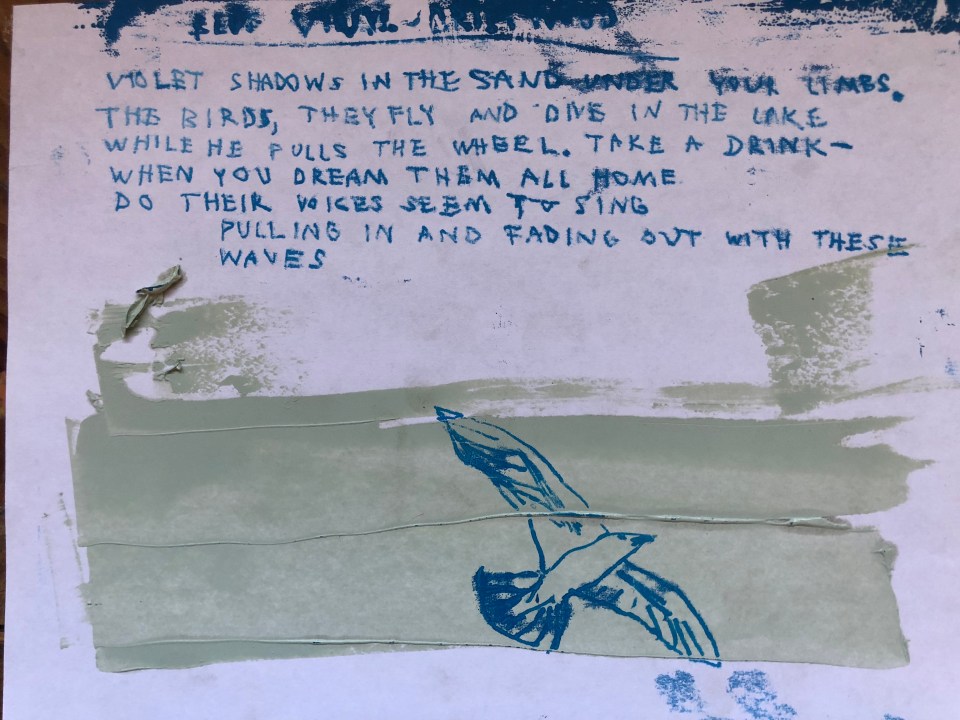 VIOLET SHADOWS IN THE SAND UNDER YOUR LIMBS.
THE BIRDS, THEY FLY AND DIVE IN THE LAKE
WHILE HE PULLS THE WHEEL. TAKE A DRINK—
WHEN YOU DREAM THEM ALL HOME
DO THEIR VOICES SEEM TO SING
PULLING IN AND FADING OUT WITH THESE
WAVES